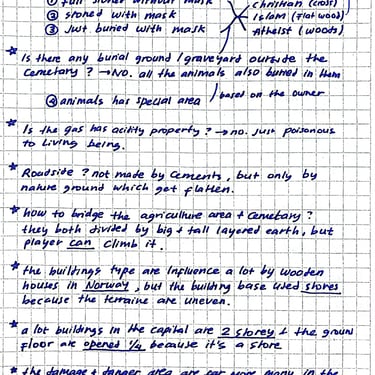 ① full stoned without mask
② stoned with mask
③ Just buried with mask
Christian (cross)
Islam (flat wood)
Atheist (woods)
* Is there any burial ground / graveyard outside the
Cemetary ? → No. all the animals also buried in them
④ animals has special area ) based on the owner
* Is the gas has acility property ? → no. Just poisonous
to Living being.
* Roadside ? not made by Cements, but only by
nature ground which get flatten.
* how to bridge the agriculture area & Cemetary ?
they both divided by big & tall layered earth, but
player can climb it.
* the buildings type are Influence a lot by wooden
houses in Norway, but the building base used stones
because the terraine are uneven.
* a lot buildings in the capital are 2 storey & the ground
floor are opened 1/4 because it's a store
* the damage & danger area are far more many in the